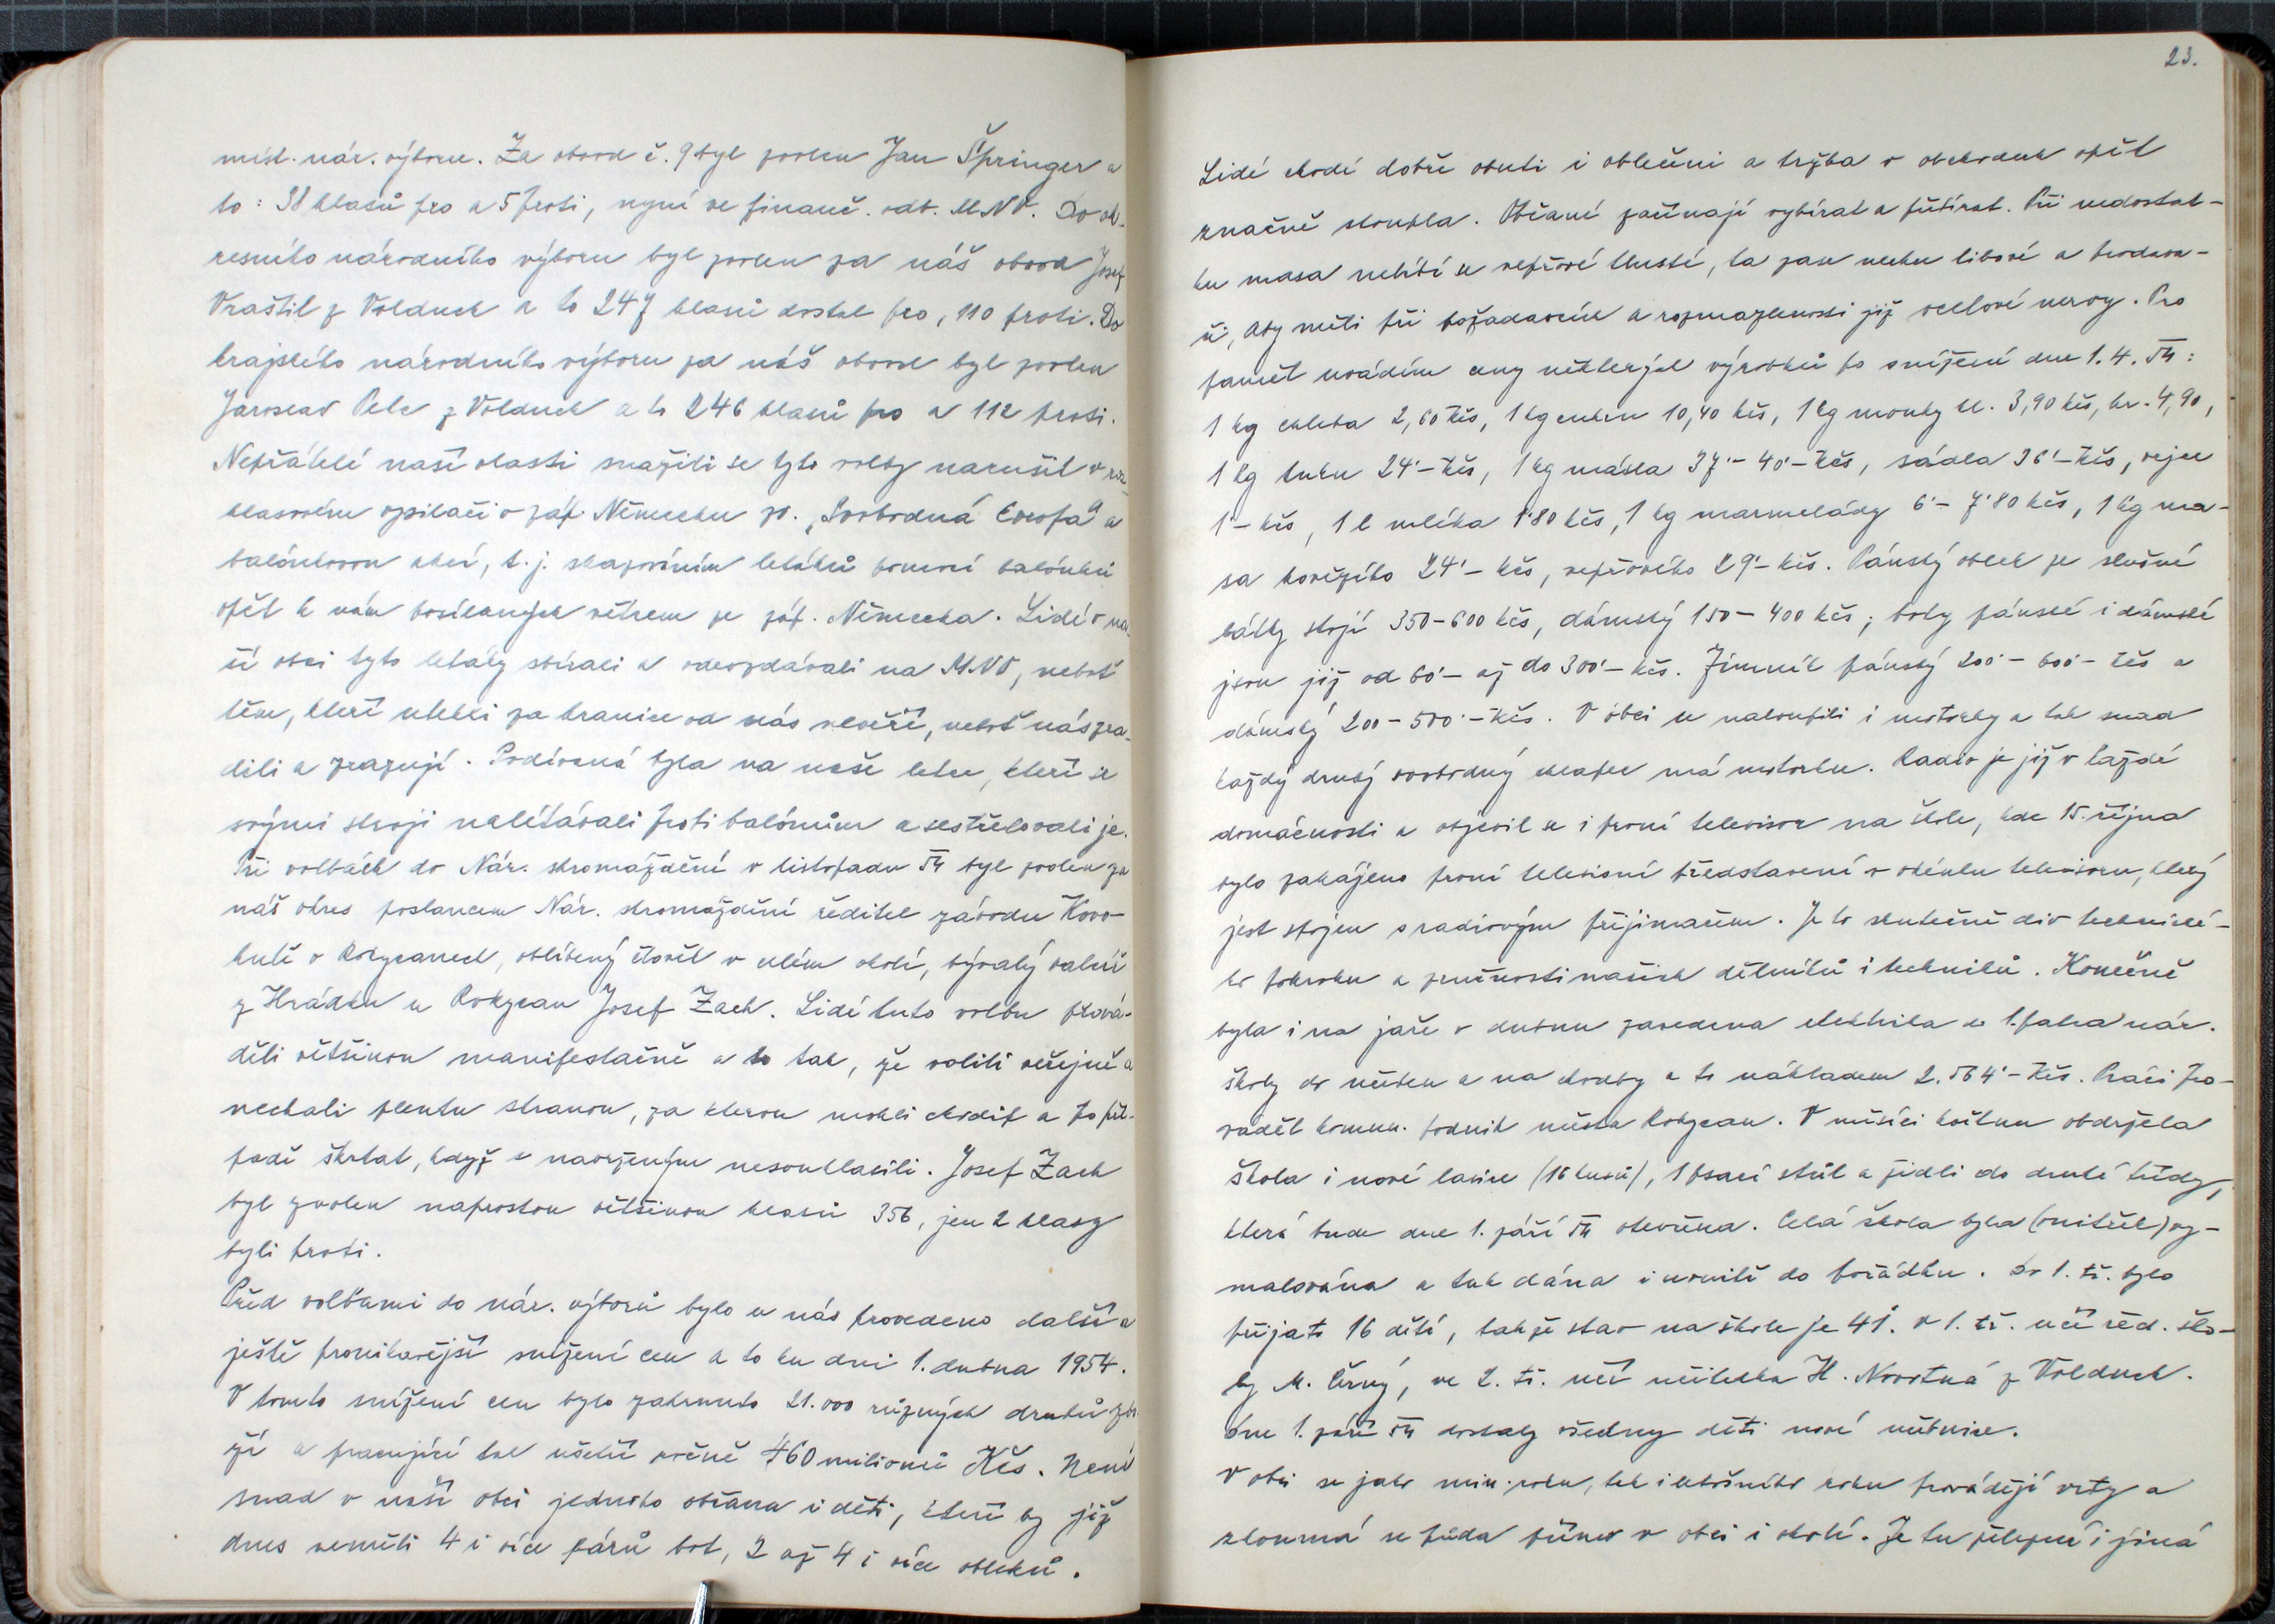 míst. nár. výboru. Za obvod č. 9 byl zvolen Jan Špringer a
to: 38 hlasů pro a 5 proti, nyní ve finanč. odb. MNV. Do ok-
resního národního výboru byl zvolen za náš obvod Josef
Vraštil z Volduch a to 247 hlasů dostal pro, 110 proti. Do
krajského národního výboru za náš obvod byl zvolen
Jaroslav Pelc z Volduch a to 246 hlasů pro a 112 proti.
Nepřátelé naší vlasti snažili se tyto volby narušit v roz-
hlasovém vysílači v záp. Německu zv. „Svobodná Evropa“ a
balónkovou akcí, t. j. shazováním letáků pomocí balónků
opět k nám posílaných větrem ze záp. Německa. Lidé v na-
ší obci tyto letáky sbírali a odevzdávali na MNV, neboť
těm, kteří utekli za hranice od nás nevěří, neboť nás zra-
dili a zrazují. Podívaná byla na naše letce, kteří se
svými stroji nalétávali proti balónům a sestřelovali je.
Při volbách do Nár. shromáždění v listopadu 54 byl zvolen za
náš okres poslancem Nár. shromáždění ředitel závodu Kovo-
hutě v Rokycanech, oblíbený člověk v celém okolí, bývalý valcíř
z Hrádku u Rokycan Josef Zach. Lidé tuto volbu prová-
děli většinou manifestačně a to tak, že volili veřejně a
nechali plentu stranou, za kterou mohli chodit a po pří-
padě škrtat, když s navrženým nesouhlasili. Josef Zach
byl zvolen naprostou většinou hlasů 356, jen 2 hlasy
byli proti.
Před volbami do nár. výborů bylo u nás provedeno další a
ještě pronikavější snížení cen a to ku dni 1. dubna 1954.
V tomto snížení cen bylo zahrnuto 21.000 různých druhů zbo-
ží a pracující tak ušetří ročně 460 milionů Kčs. Není
snad v naší obci jednoho občana i děti, kteří by již
dnes neměli 4 i více párů bot, 2 až 4 i více obleků.
23.
Lidé chodí dobře obuti i oblečeni a tržba v obchodech opět
značně stoupla. Občané začínají vybírat a přebírat. Při nedostat-
ku masa nelíbí se vepřové tlusté, ta zase nechce libové a prodava-
či, aby měli při požadavcích a rozmazlenosti již ocelové nervy. Pro
paměť uvádím ceny některých výrobků po snížení dne 1. 4. 54:
1 kg chleba 2,60 Kčs, 1 kg cukru 10,40 Kčs, 1 kg mouky hl. 3,90 Kčs, hr. 4,90,
1 kg tuku 24'– Kčs, 1 kg másla 37'– 40'– Kčs, sádla 36'– Kčs, vejce
1'– Kčs, 1 l mléka 1'80 Kčs, 1 kg marmelády 6'– 7'80 Kčs, 1 kg ma-
sa hovězího 24'– Kčs, vepřového 29'– Kčs. Pánský oblek ze slušné
látky stojí 350–600 Kčs, dámský 150–400 Kčs; boty pánské i dámské
jsou již od 60'– až do 300'– Kčs. Zimník pánský 200'– 600'– Kčs a
dámský 200–500'– Kčs. V obci se nakoupili i motorky a tak snad
každý druhý svobodný chlapec má motorku. Radio je již v každé
domácnosti a objevil se i první televisor na škole, kde 15. října
bylo zahájeno první televisní představení v okénku televisoru, který
jest spojen s radiovým přijimačem. Je to skutečně div technické-
ho pokroku a zručnosti našich dělníků i techniků. Konečně
byla i na jaře v dubnu zavedena elektrika do 1. patra nár.
školy do učeben a na chodby a to nákladem 2.564'– Kčs. Práci pro-
váděl komun. podnik města Rokycan. V měsíci květnu obdržela
škola i nové lavice (16 kusů), 1 psací stůl a židli do druhé třídy,
která bude dne 1. září 54 otevřena. Celá škola byla (vnitřek) vy-
malována a tak dána i uvnitř do pořádku. Do 1. tř. bylo
přijato 16 dětí, takže stav na škole je 41. V 1. tř. učí řed. ško-
ly M. Černý, ve 2. tř. učí učitelka H. Novotná z Volduch.
Dne 1. září 54 dostaly všechny děti nové učebnice.
V obci se jako min. roku, tak i letošního roku provádějí vrty a
zkoumá se půda přímo v obci i okolí. Je tu železná i jiná